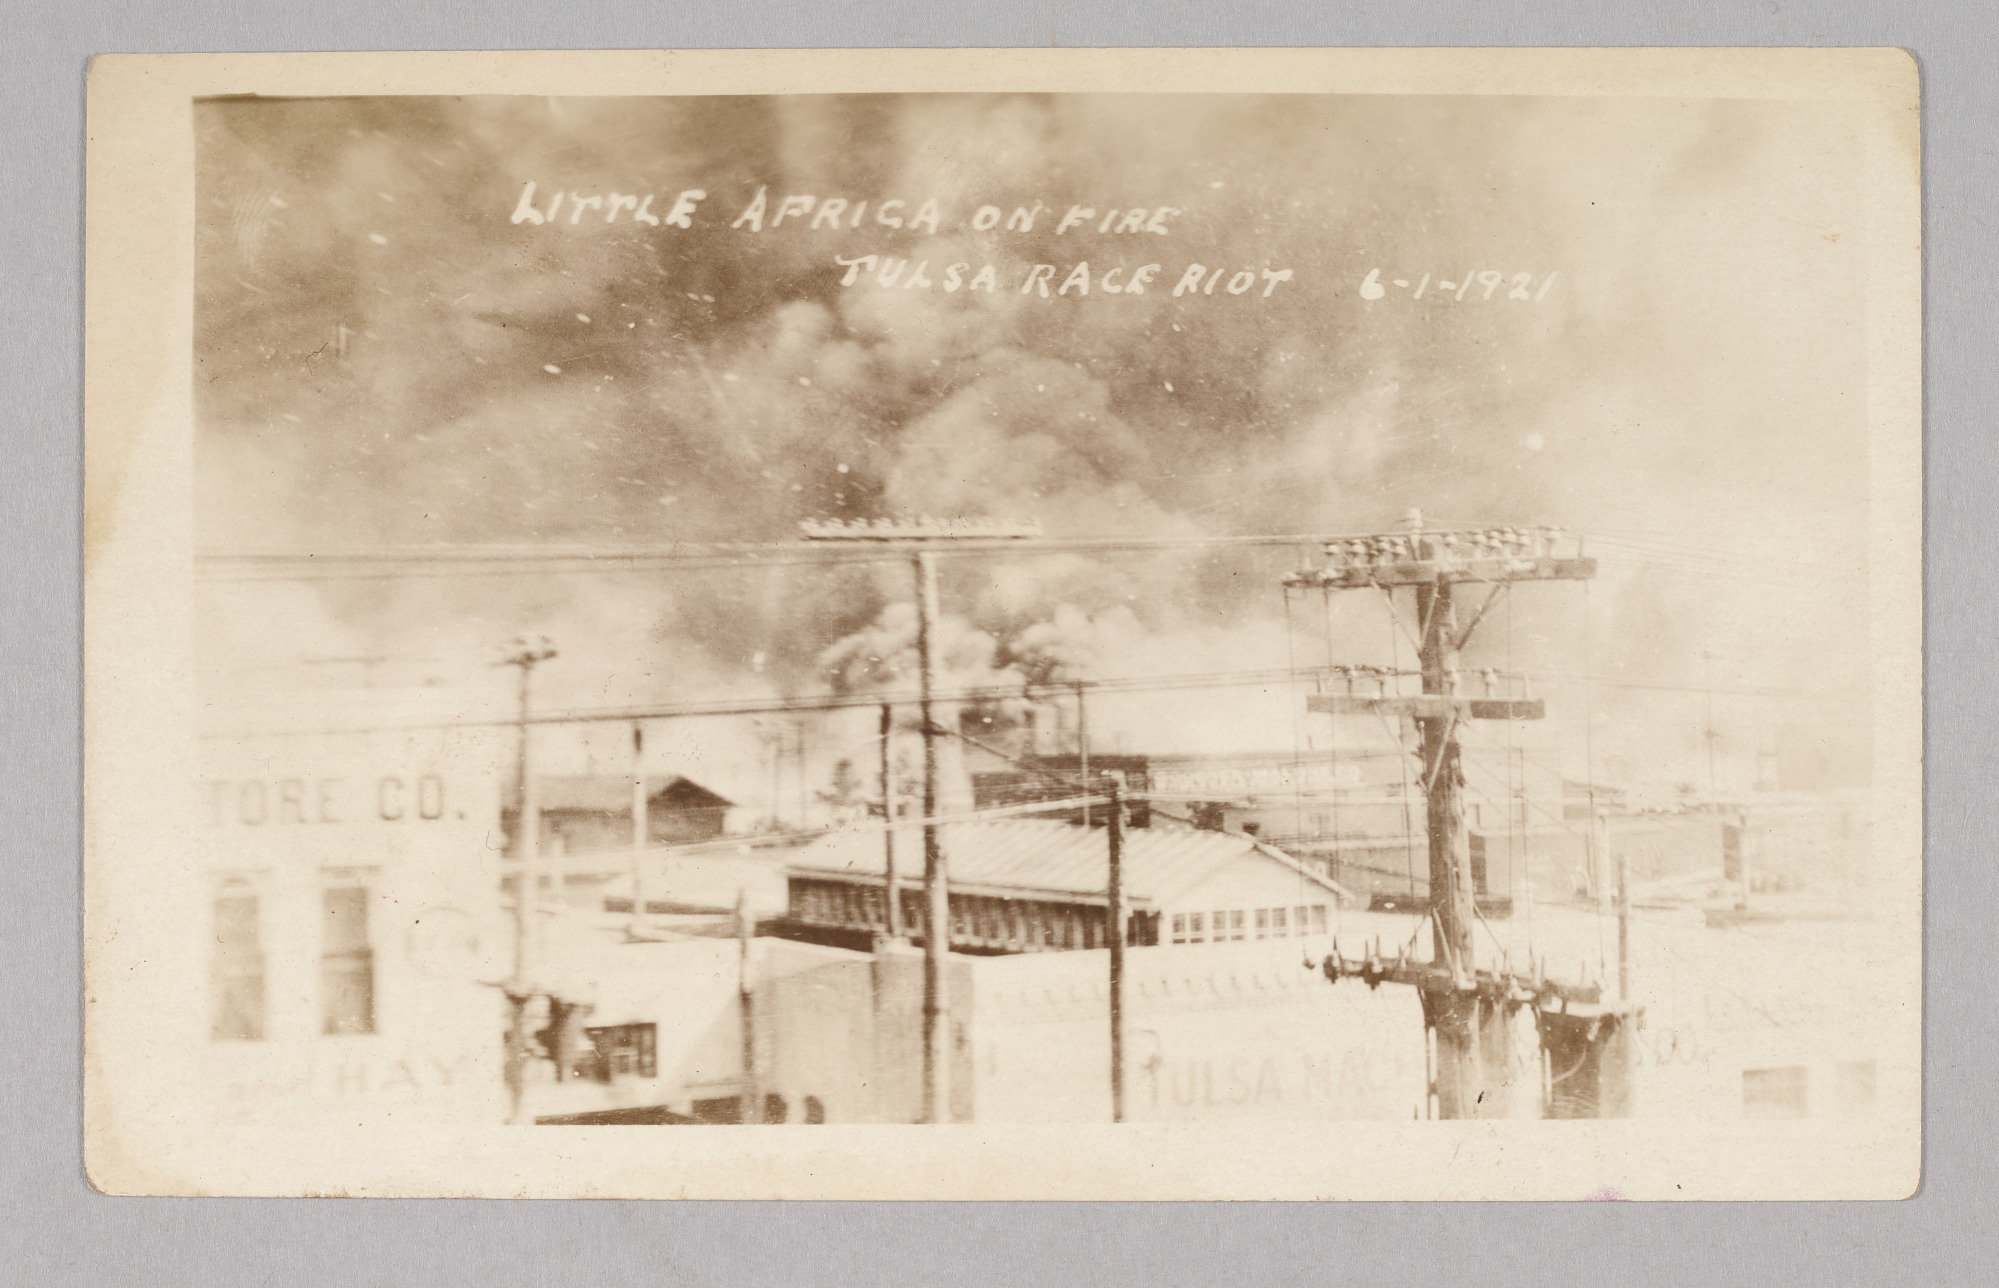 LITTLE AFRICA ON FIRE
TULSA RACE RIOT 6-1-1921
TORE CO.
HAY
TULSA MAC